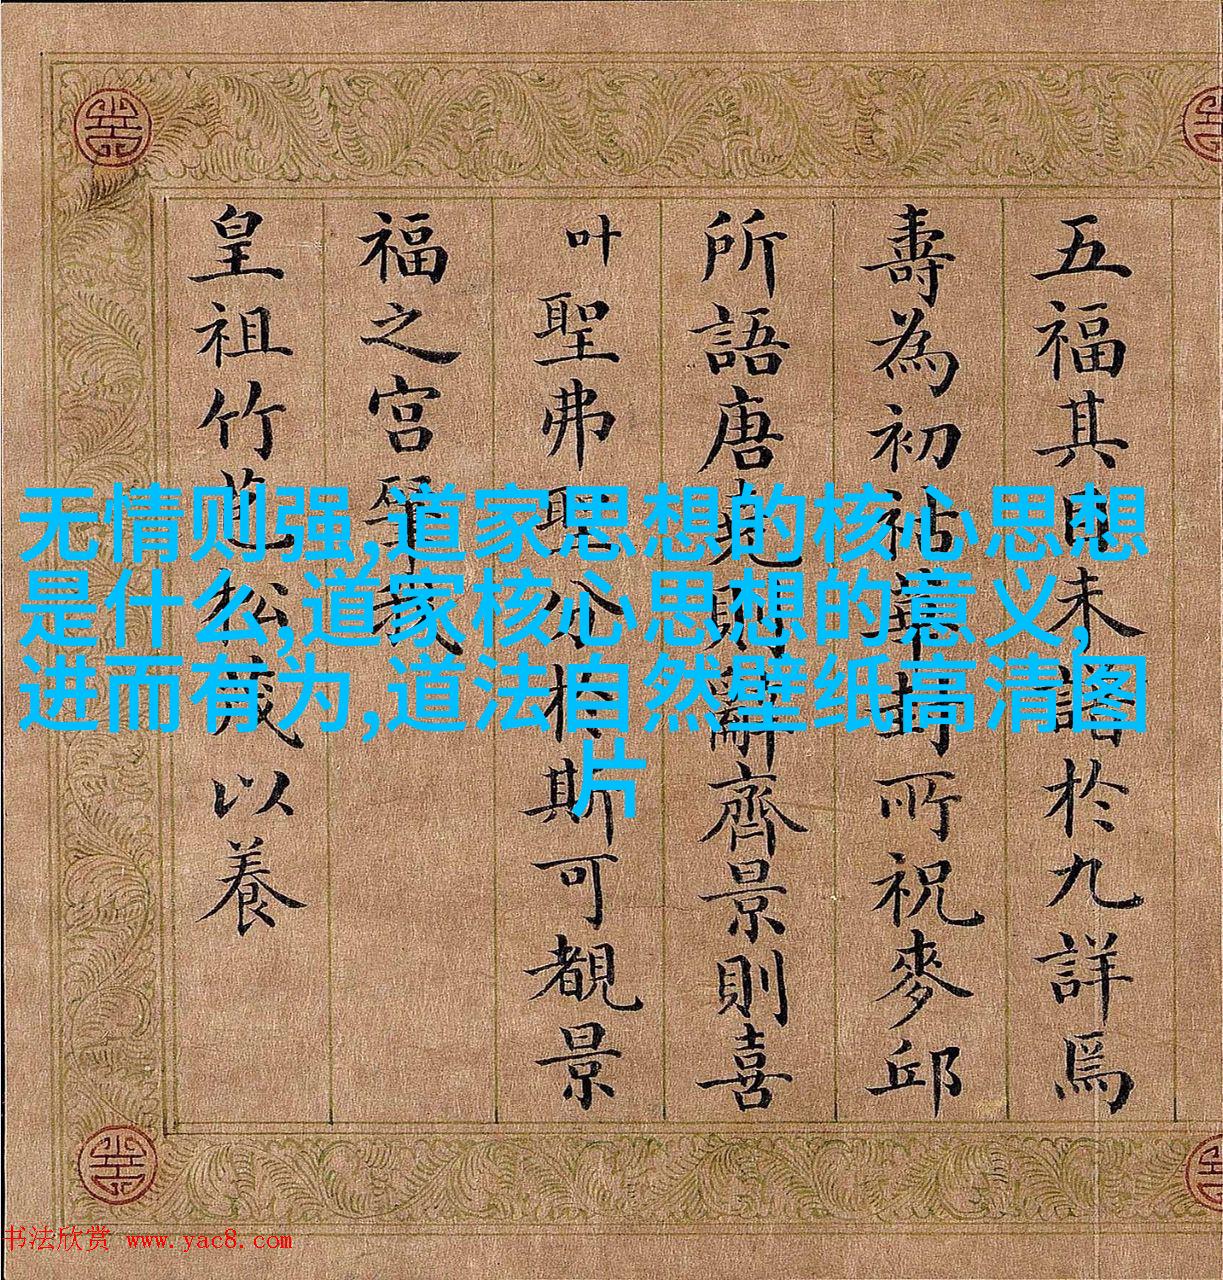 五福其未於九詳焉
壽為初祜華封所祝麥邱
所語唐堯則辭齊景則喜
叶聖弗於斯可覩景
福之宮肇我
皇祖竹苞松茂以養
无情则强,道家思想的核心思想
是什么,道家核心思想的意义,
进而有为,道法自然壁纸高清图
片
书法欣赏 www.yac8.com